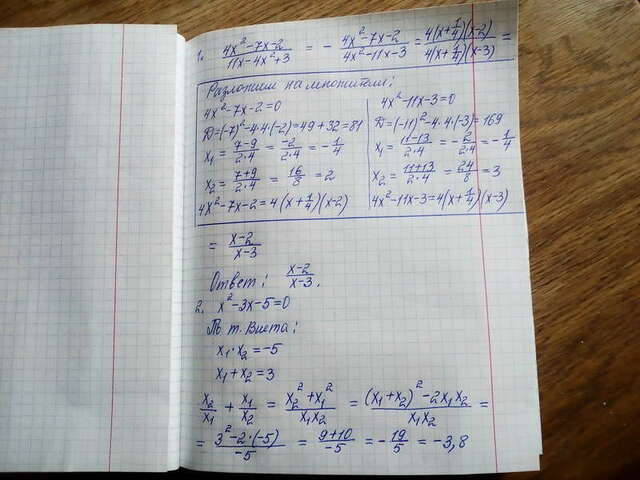 1. (4x²-7x-2)/(11x-4x²+3) = - (4x²-7x-2)/(4x²-11x-3) = (4(x+1/4)(x-2))/(4(x+1/4)(x-3)) =
Разложим на множители:
4x²-7x-2=0
D=(-7)²-4·4·(-2)=49+32=81
x₁ = (7-9)/(2·4) = (-2)/(2·4) = -1/4
x₂ = (7+9)/(2·4) = 16/8 = 2
4x²-7x-2=4(x+1/4)(x-2)
4x²-11x-3=0
D=(-11)²-4·4·(-3)=169
x₁ = (11-13)/(2·4) = -2/(2·4) = -1/4
x₂ = (11+13)/(2·4) = 24/8 = 3
4x²-11x-3=4(x+1/4)(x-3)
= (x-2)/(x-3)
Ответ: (x-2)/(x-3).
2. x²-3x-5=0
По т. Виета:
x₁·x₂=-5
x₁+x₂=3
x₂/x₁ + x₁/x₂ = (x₂²+x₁²)/(x₁x₂) = ((x₁+x₂)²-2x₁x₂)/(x₁x₂) =
= (3²-2·(-5))/(-5) = (9+10)/(-5) = -19/5 = -3,8